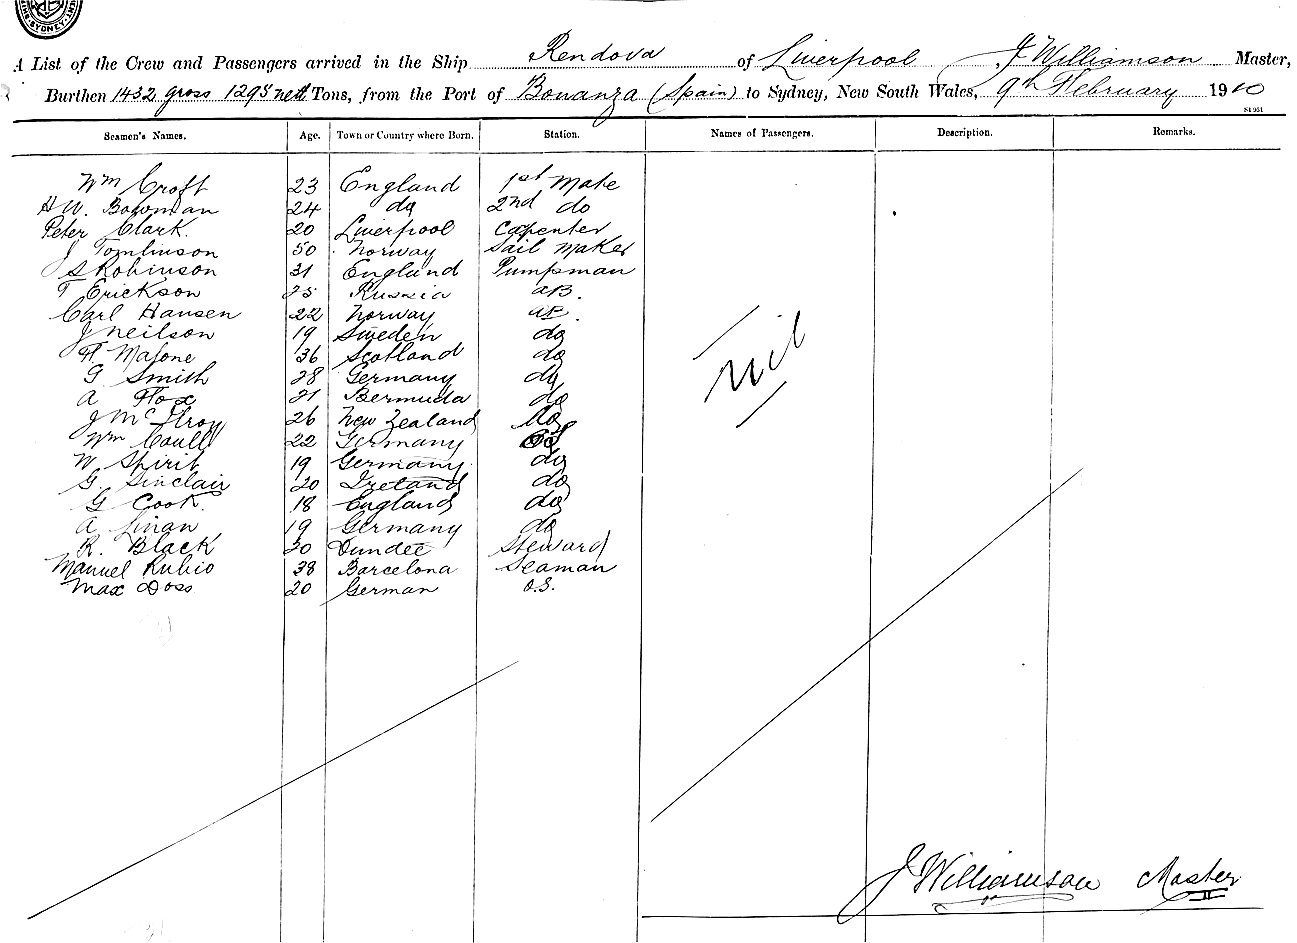 SYDNEY
A List of the Crew and Passengers arrived in the Ship Rendova of Liverpool J Williamson Master,
Burthen 1432 gross 1293 nett Tons, from the Port of Bonanza (Spain) to Sydney, New South Wales, 9th February 1910
S1 951
Seamen's Names. Age. Town or Country where Born. Station. Names of Passengers. Description. Remarks.
Wm Croft 23 England 1st Mate
H W. Bowman 24 do 2nd do
Peter Clark. 20 Liverpool Carpenter
J Tomlinson 50 Norway Sail Maker
S Robinson 31 England Pumpsman
T Erickson 25 Russia AB.
Carl Hansen 22 Norway AB.
J Neilson 19 Sweden do
H. Malone 36 Scotland do
G Smith 28 Germany do
A Fox 21 Bermuda do
J McIlroy 26 New Zealand do
Wm Coull 22 Germany
W Spirit 19 Germany do
G. Sinclair 20 Ireland do
G Cook. 18 England do
A 19 Germany do
R. Black 30 Dundee Steward
Manuel Rubio 38 Barcelona Seaman
Max Doss 20 German O.S.
Nil
J Williamson Master